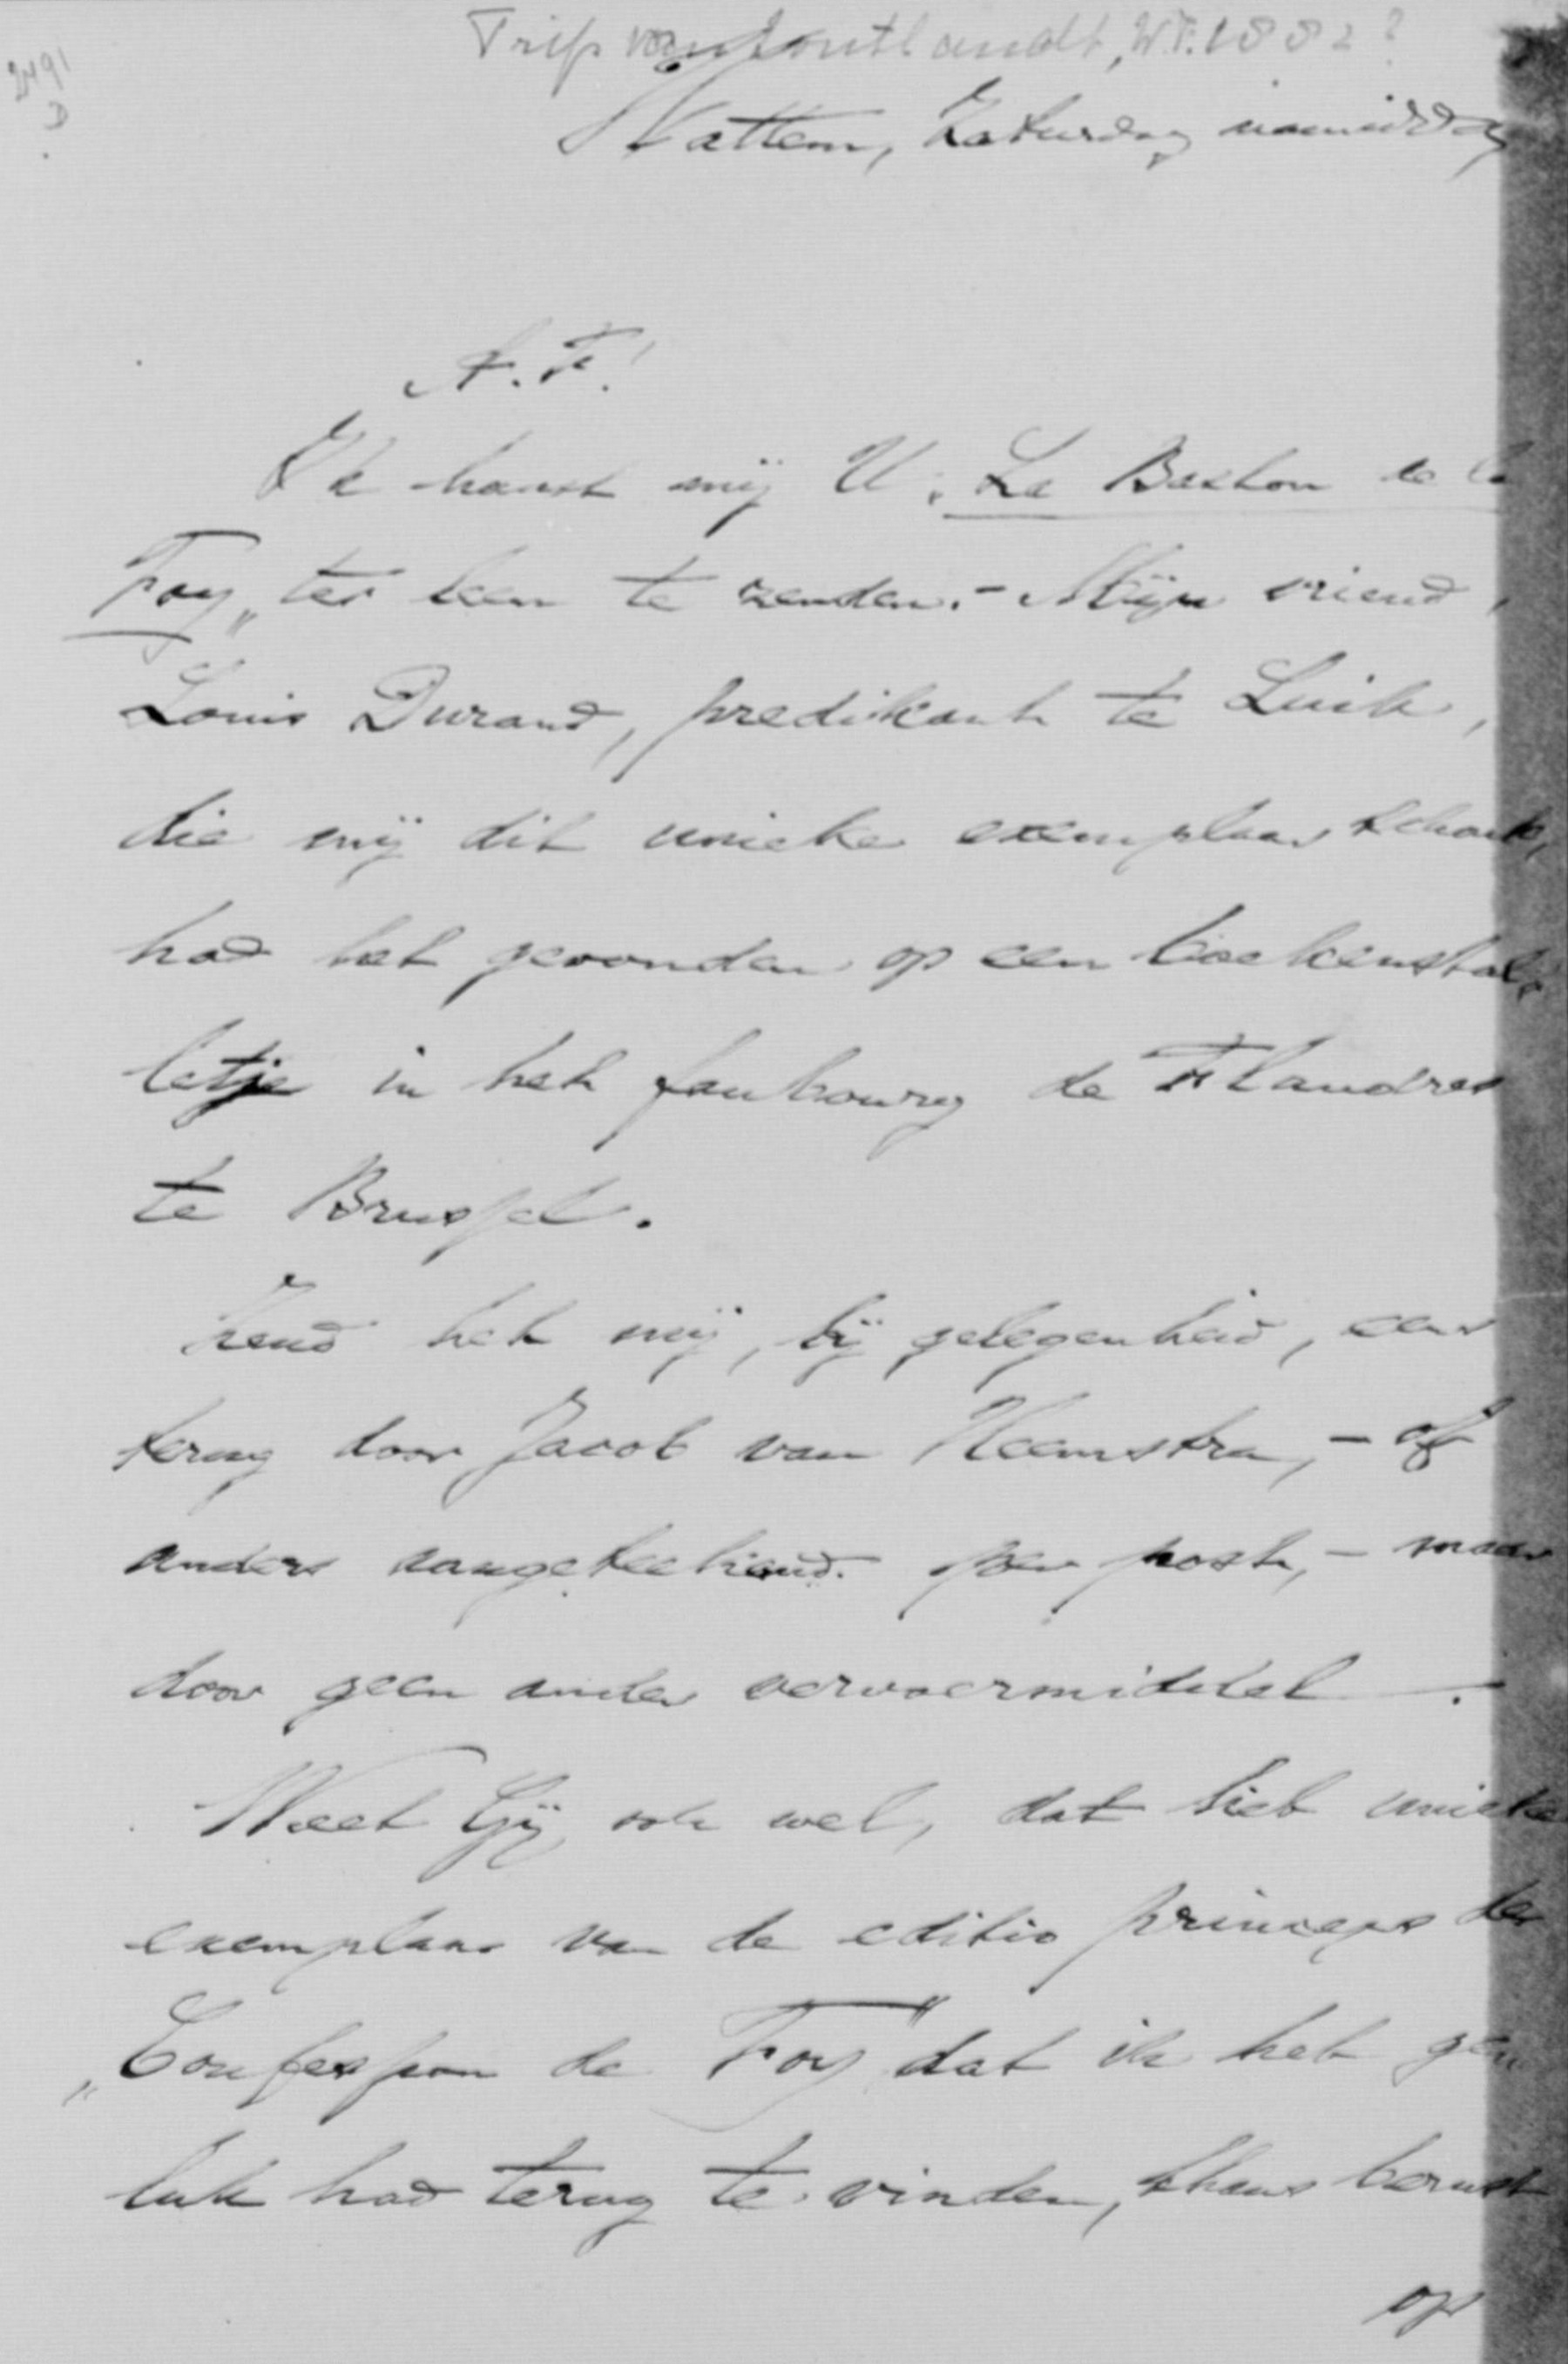 2491
D
Trip van Zoutlandt, W.F. 1882?
Hattem, Zaturdag namiddag
A. F.!
Ik haast mij U „Le Baston de la
Foy„ ter leen te zenden. – Mijn vriend,
Louis Durand, predikant te Luik,
die mij dit unieke exemplaar schonk,
had het gevonden op een boekenstal-
letje in het faubourg de Flandres
te Brussel.
Zend het mij, bij gelegenheid, eens
terug door Jacob van Heemstra, – of
anders aangeteekend per post, – maar
door geen ander vervoermiddel.
Weet Gij ook wel, dat het unieke
exemplaar van de editio princeps der
„Confession de Foy" dat ik het ge-
luk had terug te vinden, thans berust
op